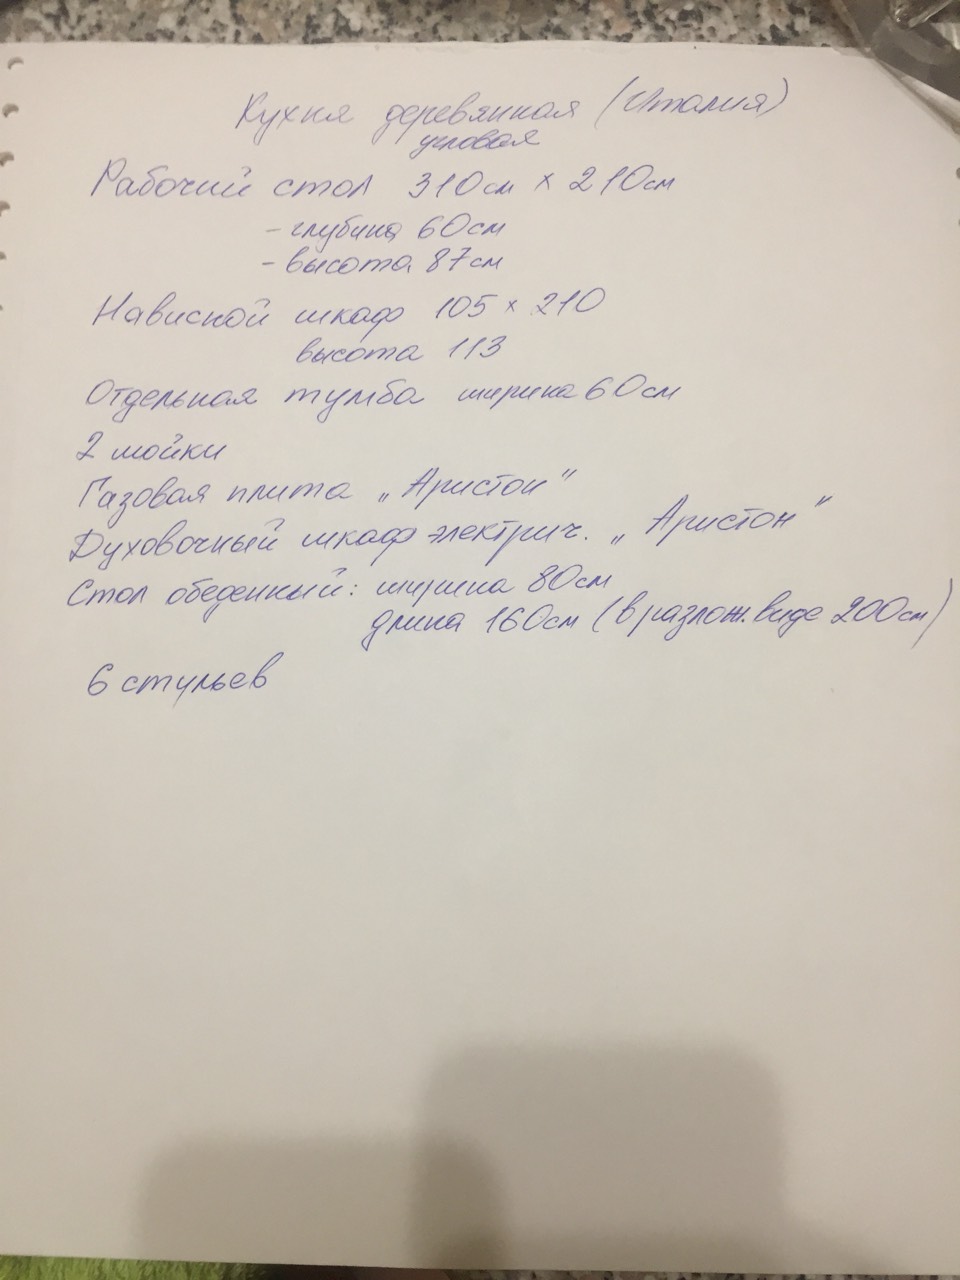 Кухня деревянная (Италия)
угловая
Рабочий стол 310см × 210см
- глубина 60см
- высота 87см
Нависной шкаф 105 × 210
высота 113
Отдельная тумба ширина 60см
2 мойки
Газовая плита „Аристон"
Духовочный шкаф электрич. „Аристон"
Стол обеденный: ширина 80см
длина 160см (в разлож. виде 200см)
6 стульев